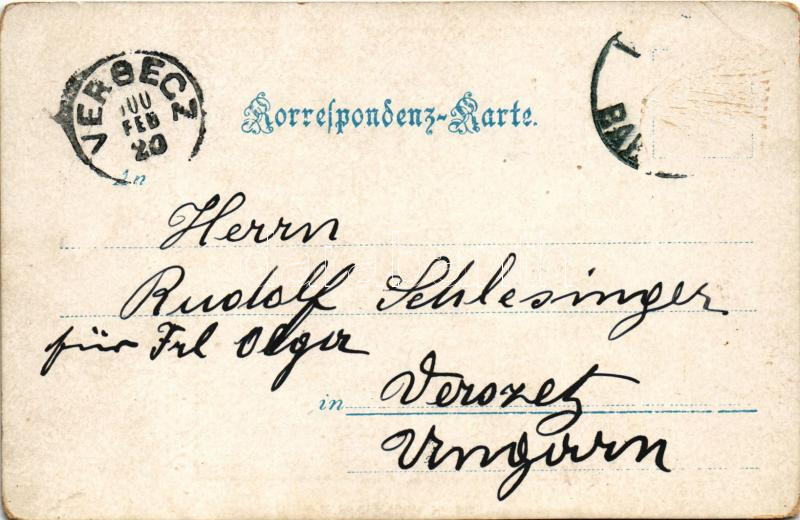 VERSECZ
900
FEB
20
Korrespondenz-Karte.
BAY
An
Herrn
Rudolf Schlesinger
für Frl Olga
in Verszetz
Ungarn